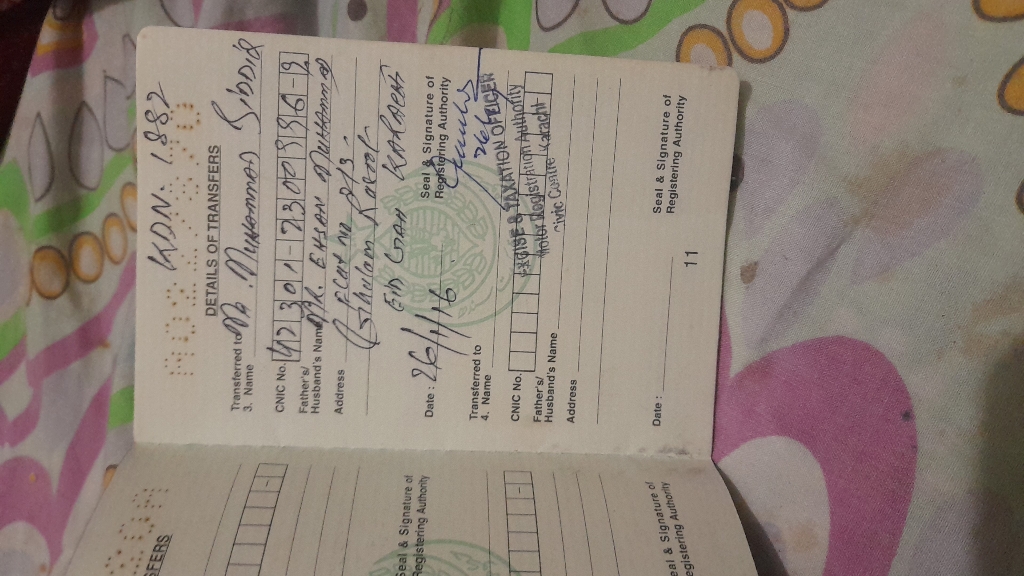 KDN. 1882
DETAILS OF TRANSFERS
Transferred to Mr Muhammad Siddiq
3. Name
CNIC No. 42301-
Father's/
Husband's Name MR. EHSAN MUHAMMAD
Address Flat no
Ghulam
Eid Gah KARACHI
Date : 26/1/16
Seal & Signature of
Registering Authority
EXCISE & TAXATION OFFICER
Motor Registration Authority
Civic Centre Karachi
Transferred to
4. Name
CNIC No.
Father's/
Husband's Name
Address
Date :
Seal & Signature of
Registering Authority
11
FERS
Seal & Signature of
Registering Authority
Seal & Signature of
Registering Authority